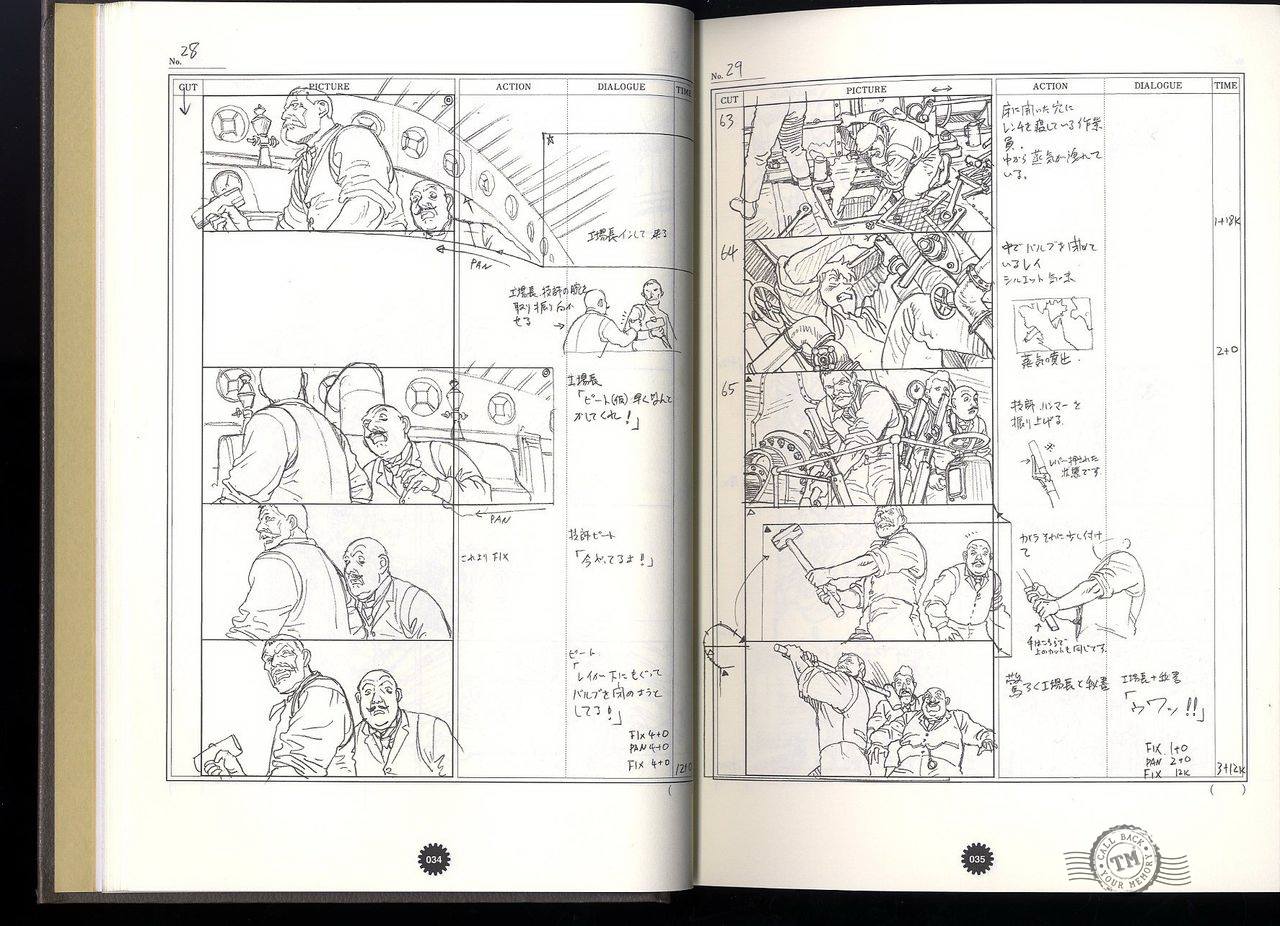 No. 28
CUT
PICTURE
ACTION
DIALOGUE
TIME
工場長インして来る
PAN
工場長、技師の腕を
取り振り向か
せる
工場長
「ピート(仮)早くなんと
かしてくれ!」
PAN
技師ピート
これより FIX
「今やってるよ!!」
ピート
「レイが下にもぐって
バルブを閉めようと
してる!」
FIX 4+0
PAN 4+0
FIX 4+0
12+0
034
No. 29
CUT
PICTURE
ACTION
DIALOGUE
TIME
63
床に開いた穴に
レンチを渡している作業
員。
中から蒸気が漏れて
いる。
1+18K
64
中でバルブを閉めて
いるレイ
シルエット気味
蒸気噴出.
2+0
65
技師 ハンマーを
振り上げる.
レバー押された
状態です
カメラそれに少し付け
て
手はこちらで
上のカットも同じです.
驚ろく工場長と秘書
工場長+秘書
「ウワッ!!」
FIX 1+0
PAN 2+0
FIX 12K
3+12K
( )
035
CALL BACK
TM
YOUR MEMORY